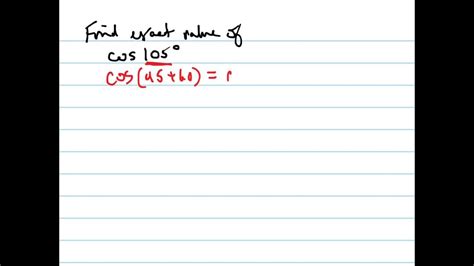 Find exact value of
cos 105°
cos(45+60) = c